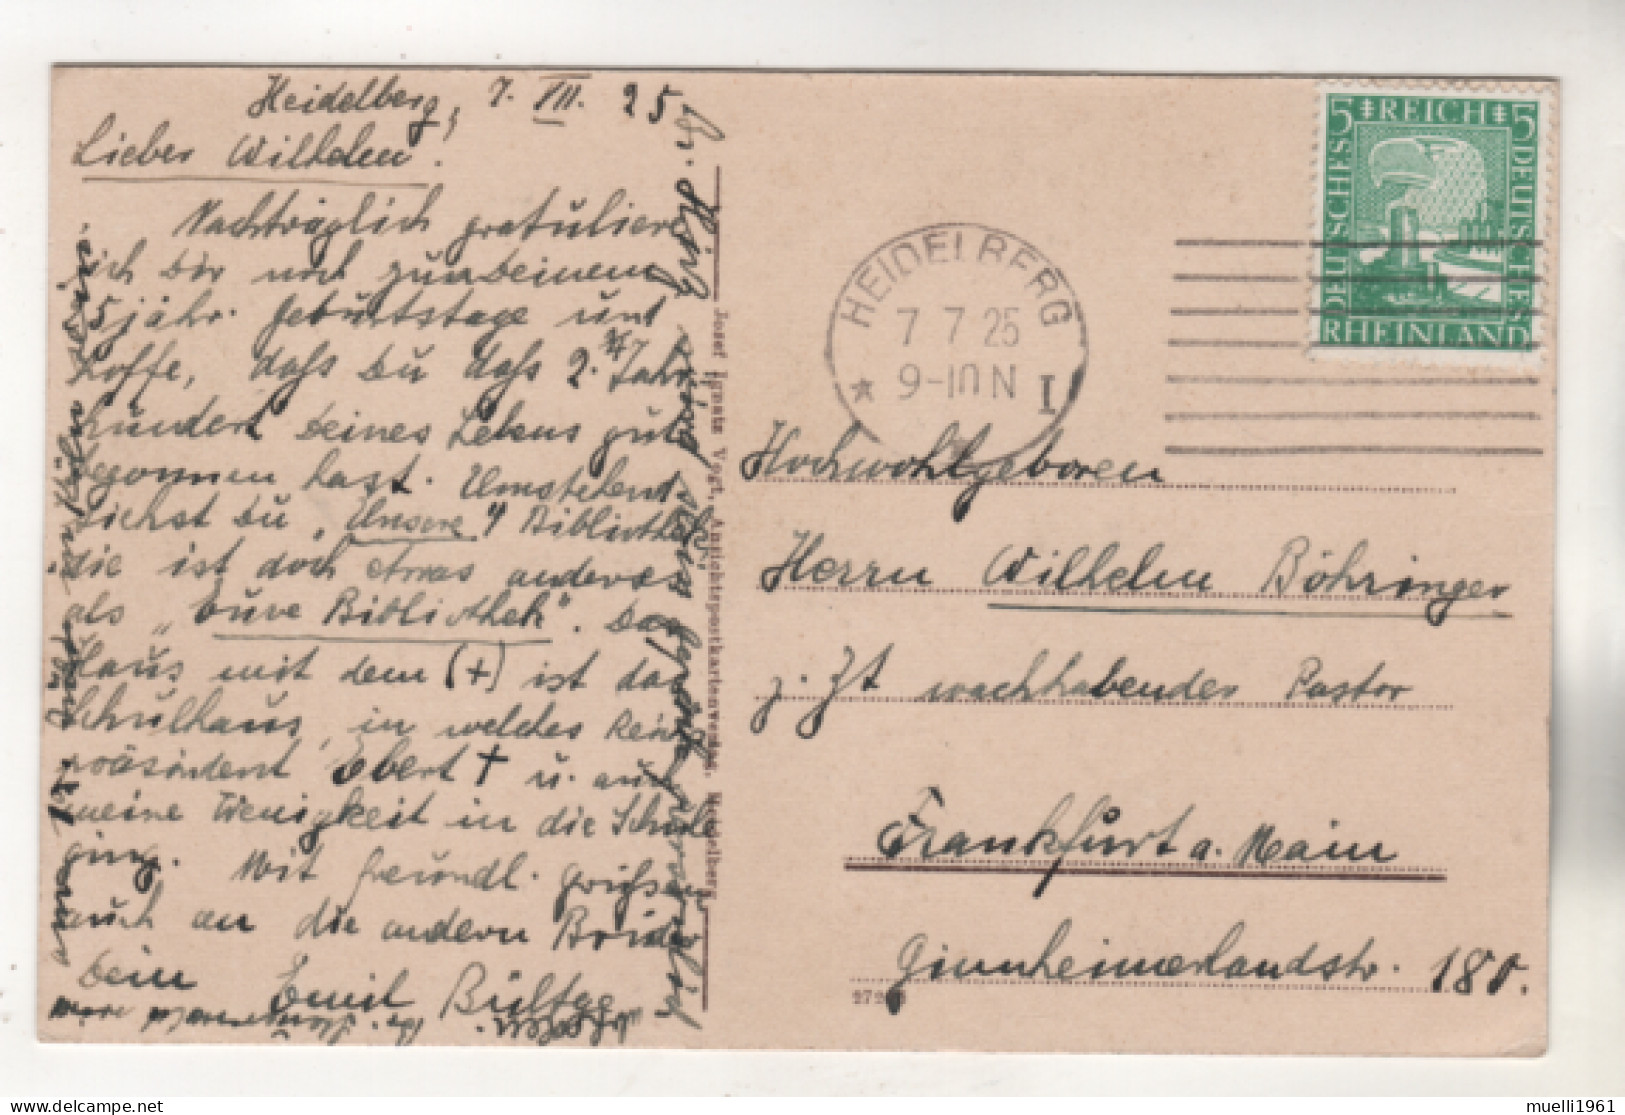 Heidelberg, 7. VII. 25
Lieber Wilhelm!
Nachträglich gratuliere
ich dir noch zum deinem
25 jähr. Geburtstage und
hoffe, daß du daß 2. ¼ Jahr
hundert deines Lebens gut
begonnen hast. Umstehend
siehst du „Unsere“ Bibliothek,
die ist doch etwas anderes
als „Eure Bibliothek“. Das
Haus mit dem (+) ist das
Schulhaus, in welches Reichs
präsident Ebert † u. auch
meine Wenigkeit in die Schule
ging. Mit freundl. Grüßen
auch an die andern Brüder
dein Emil Bültge
Josef Ignatz Vogt, Ansichtspostkartenverlag, Heidelberg.
5 REICH 5
DEUTSCHES
DEUTSCHES
RHEINLAND
HEIDELBERG
7 7 25
9-10 N
★ I
Hochwohlgeboren
Herrn Wilhelm Böhringer
z. Zt wachhabender Pastor
Frankfurt a. Main
Ginnheimerlandstr. 180.
muelli1961